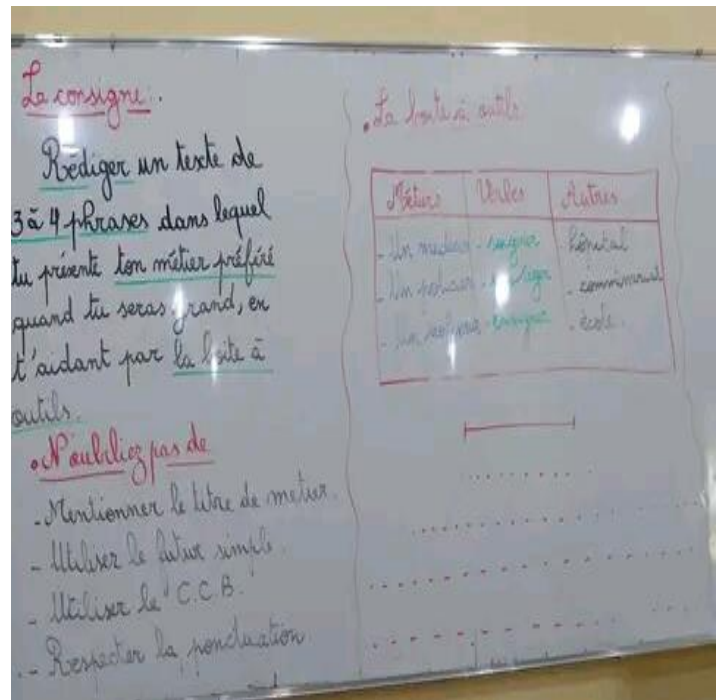 La consigne:.
Rédiger un texte de
3 à 4 phrases dans lequel
tu présente ton métier préféré
quand tu seras grand, en
t'aidant par la boite à
outils.
• N'oubliez pas de
- Mentionner le titre de metier.
- Utiliser le futur simple.
- Utiliser le C.C.B.
- Respecter la ponctuation
• La boite à outils
Métiers Verbes Autres
- Un - soigner - hôpital
- Un policier -
- Un - - école.